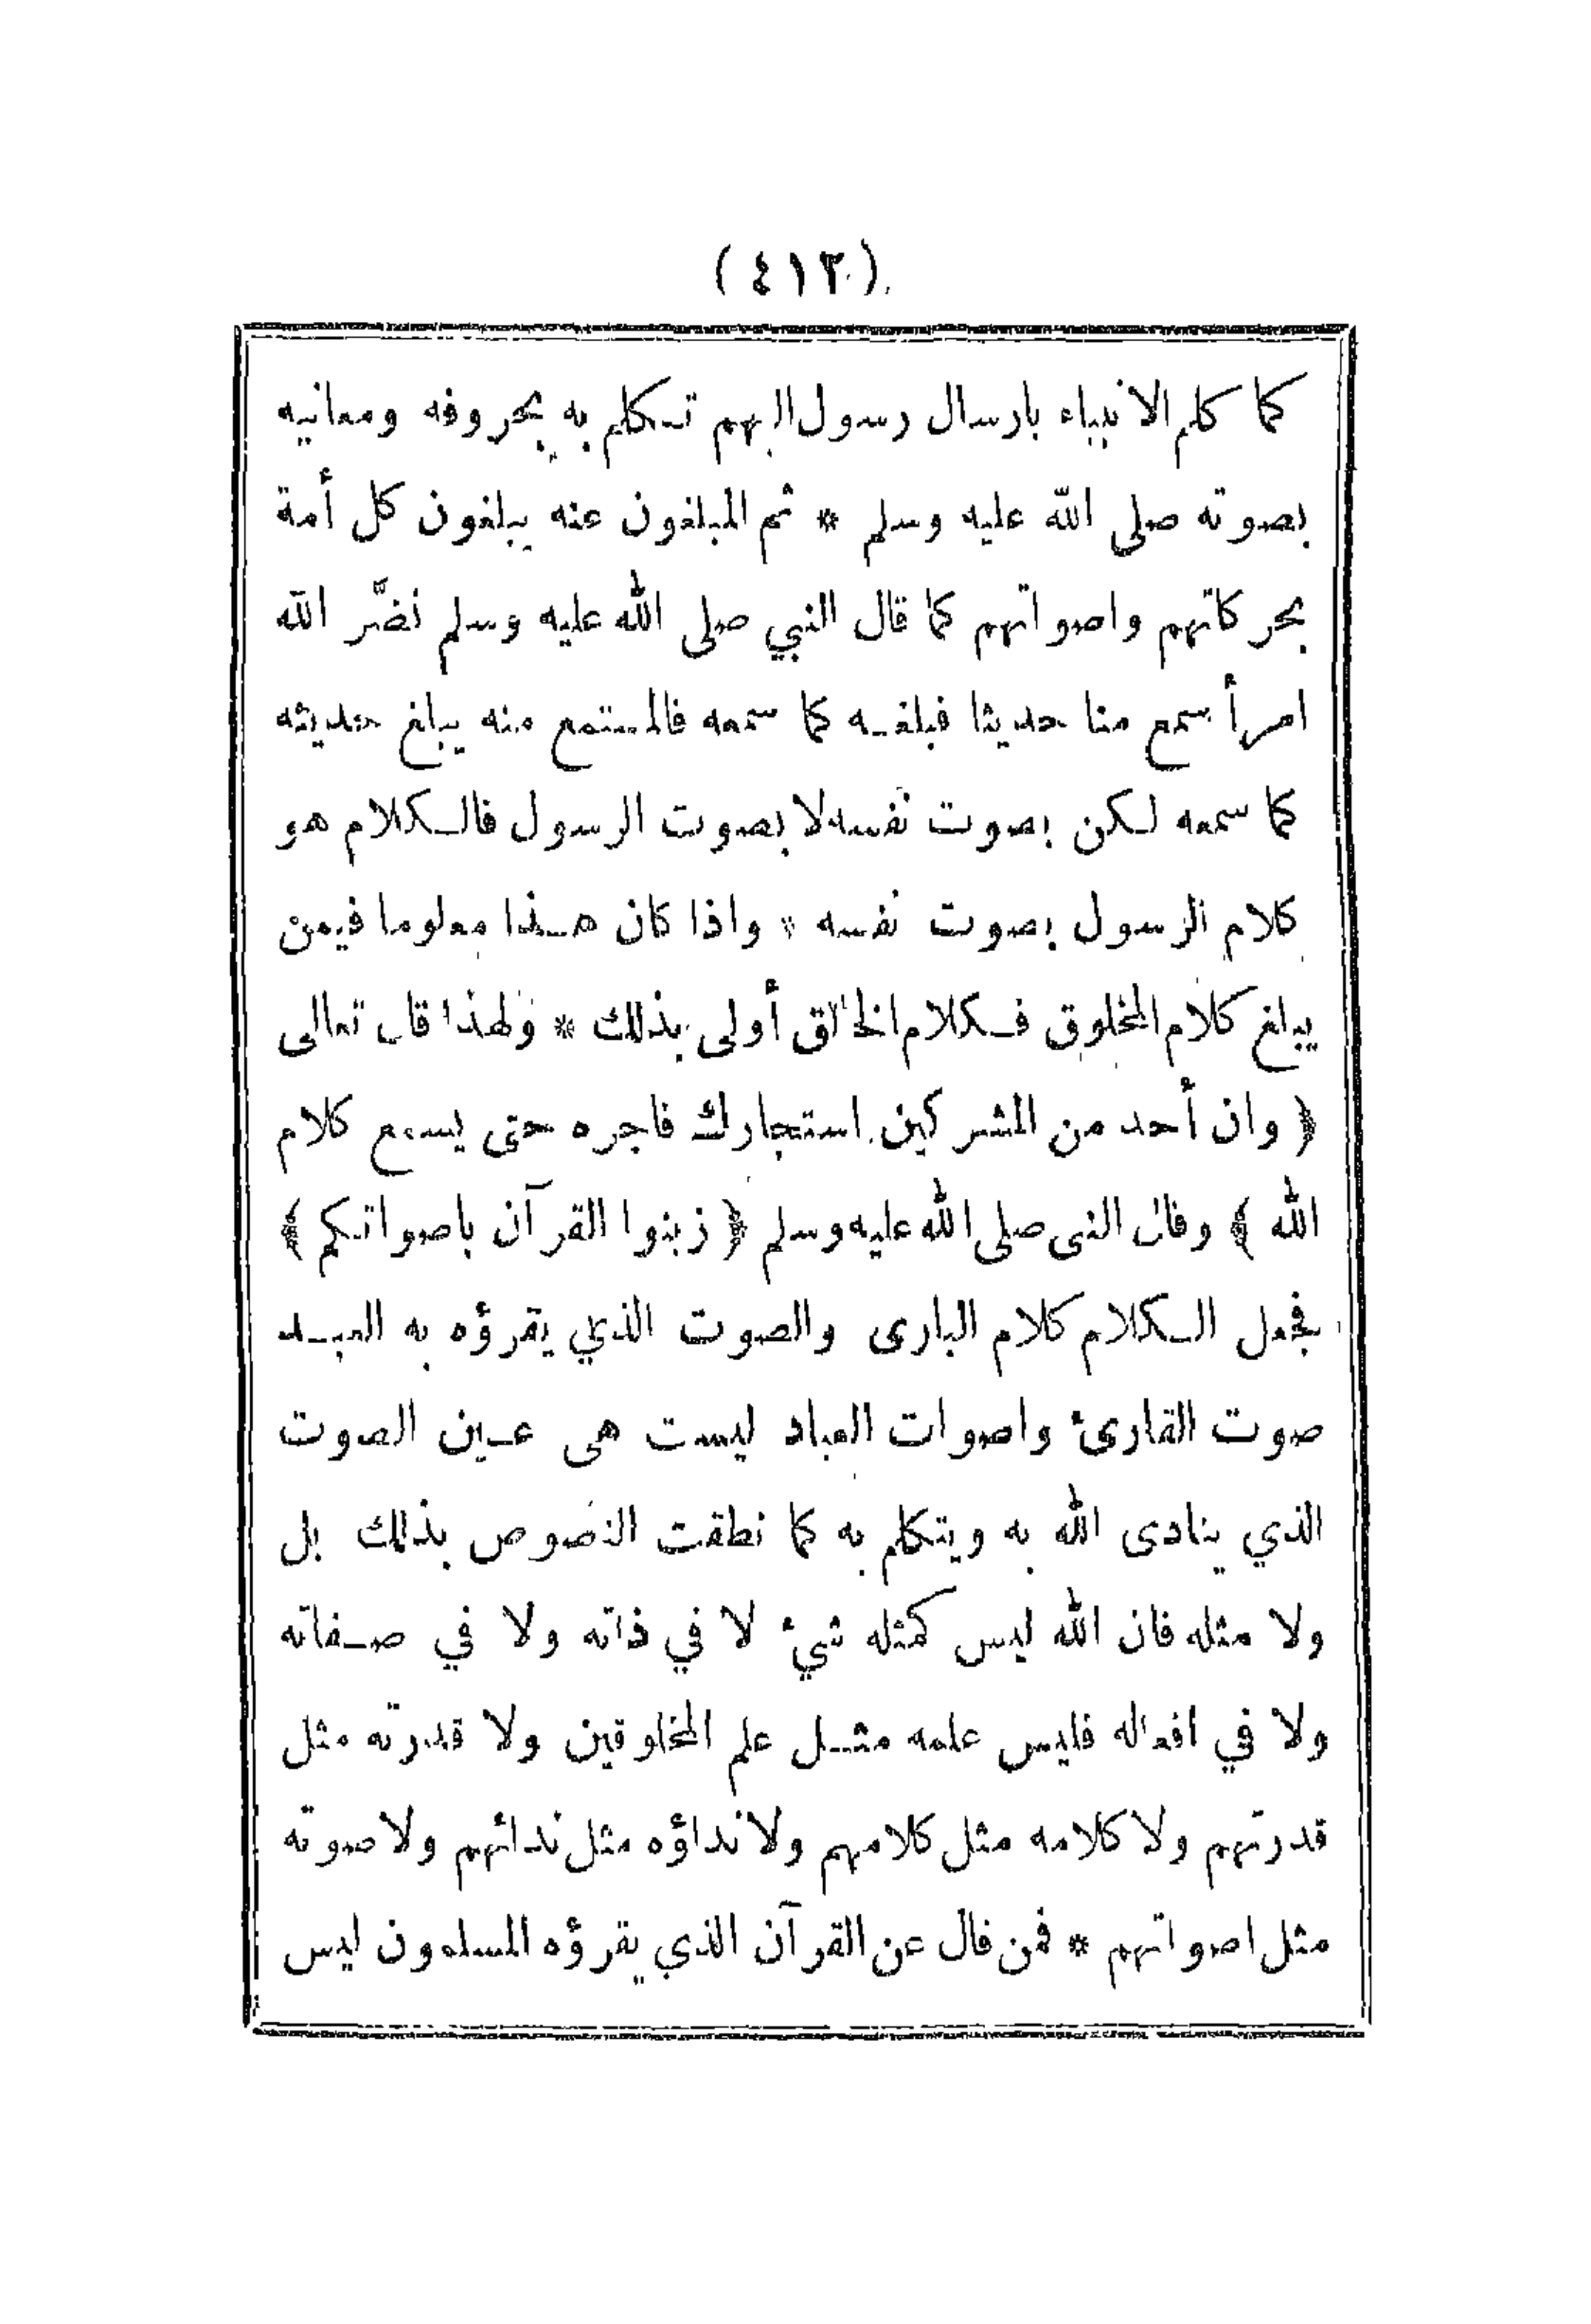 (٤١٣)
كما كلم الانبياء بارسال رسول اليهم تكلم به بحروفه ومعانيه
بصوته صلى الله عليه وسلم * ثم المبلغون عنه يبلغون كل أمة
بحركاتهم واصواتهم كما قال النبي صلى الله عليه وسلم نضَّر الله
امرأ سمع منا حديثا فبلغه كما سمعه فالمستمع منه يبلغ حديثه
كما سمعه لكن بصوت نفسه لا بصوت الرسول فالكلام هو
كلام الرسول بصوت نفسه * واذا كان هذا معلوما فيمن
يبلغ كلام المخلوق فكلام الخالق أولى بذلك * ولهذا قال تعالى
﴿ وان أحد من المشركين استجارك فاجره حتى يسمع كلام
الله ﴾ وقال النبى صلى الله عليه وسلم ﴿ زينوا القرآن باصواتكم ﴾
فجعل الكلام كلام البارى والصوت الذي يقرؤه به العبد
صوت القارئ واصوات العباد ليست هى عين الصوت
الذي ينادى الله به ويتكلم به كما نطقت النصوص بذلك بل
ولا مثله فان الله ليس كمثله شيء لا في ذاته ولا في صفاته
ولا في افعاله فليس علمه مثل علم المخلوقين ولا قدرته مثل
قدرتهم ولا كلامه مثل كلامهم ولا نداؤه مثل ندائهم ولا صوته
مثل اصواتهم * فمن قال عن القرآن الذي يقرؤه المسلمون ليس